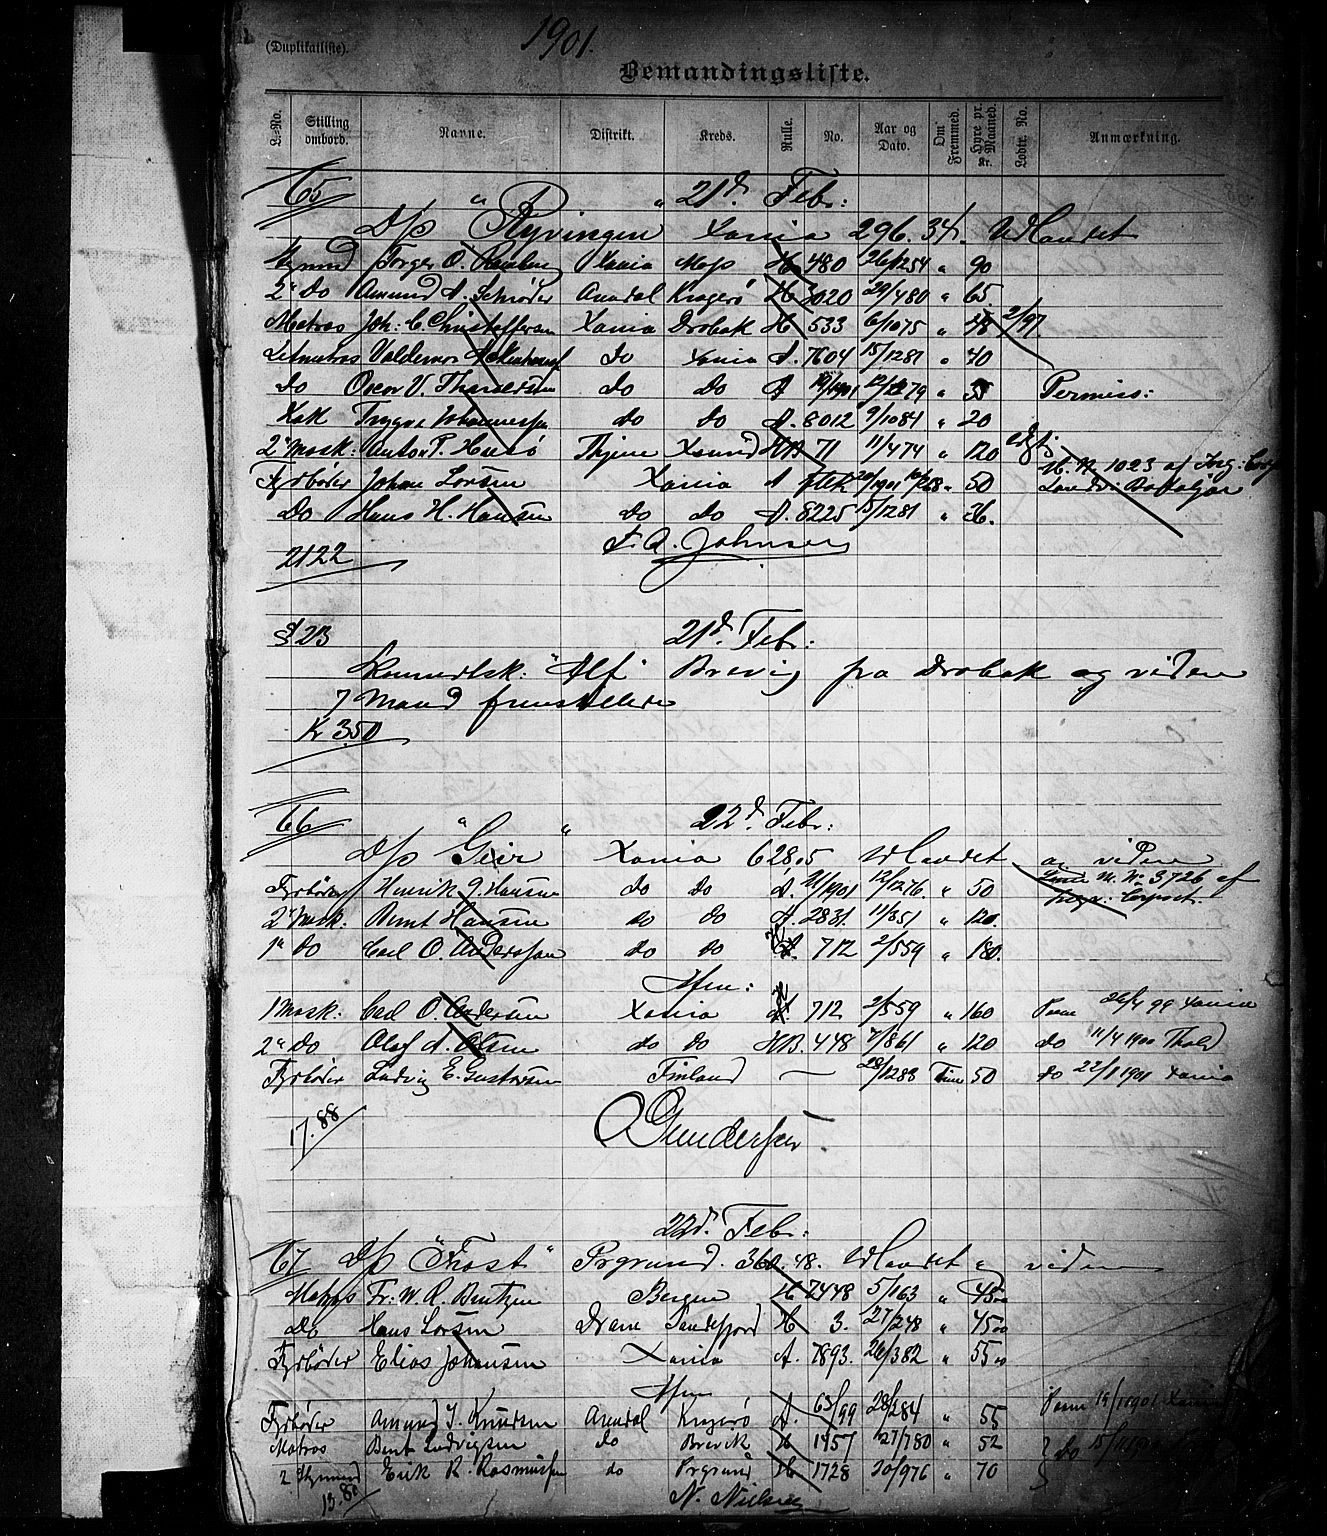 (Duplikatliste).
1901.
Bemandingsliste.
L.-No. Stilling ombord. Navne. Distrikt. Kreds. Rulle. No. Aar og Dato. Om Fremmed. Hyre pr. Maaned. Kr. Lodtr. No. Anmærkning.
65 21d Febr:
D/s "Ryvingen" Xania 296.34. Udlandet
Styrmd Torger O. Xania Moss H 480 26/1254 " 90
2n Do Amund A. Schrøder Arendal Kragerø H 2020 29/480 " 65.
Matros Joh: C. Christoffersen Xania Drøbak H 533 6/1075 " 48 2/97.
Letmatros Valdemar do Xania A. 7604 15/1281 " 40
Do Oscar V. do do A /1901 12/1279 " 55 Permiss:
Kok Trygve Johannessen do do A. 8012 9/1084 " 20
2n Mask: Anton P. Husø Xsund HB 71 11/474 " 120
Fyrbøder Johan Larsen Xania A 20/1901 " 50 M. No 1023 af
Do Hans H. Hansen do do A. 8225 15/1281 " 36.
2122 F. A. Johnsen
23 21d. Febr:
"Alf" Brevig fra Drøbak og videre
7 Mand fremstillede
Kr 3.50
66 22d. Febr:
D/s "Geir" Xania 628.05 Udlandet og videre
Fyrbøder Henrik J. Hansen do do A. 21/1901 12/1276 " 50 M. No 3726 af
2n Mask. Bernt Hansen do do A. 2831. 11/351 " 120.
1n do Carl O. Anderssen do do A. 712 2/559 " 180.
Afm:
1 Mask: Carl O. Andersen Xania A. 712 2/559 " 160 Paam 26/4 99 Xania
2n Do Olaf A. Olsen do do HB. 448 7/861 " 120 do 11/4 1900 Thold
Fyrbøder Ludvig E. Gustavsen Finland — 28/1283 50 do 22/1 1901 Xania
17.88 Gundersen
22d. Febr:
67 D/s "Frost" Prgrund. 360.48. Udlandet & videre
Fr: W. R. Bentzen Bergen H 2448 5/163 " 45.00
Do Hans Larsen Dram Sandefjord H 3. 27/248 " 45.00
Fyrbøder Elias Johansen Xania A. 7893. 26/382 " 55.00
Afm
Fyrbøder Amund T. Knudsen Arendal Kragerø A. 63/99 28/284 " 55 Paam 19/1 1901 Xania
Matros Bent Ludvigsen do Brevik H 1457 27/780 " 52 do
2 Styrmand Erik R. Rasmussen do Prgrund H 1728 30/976 " 70
13.80 N. Nielsen